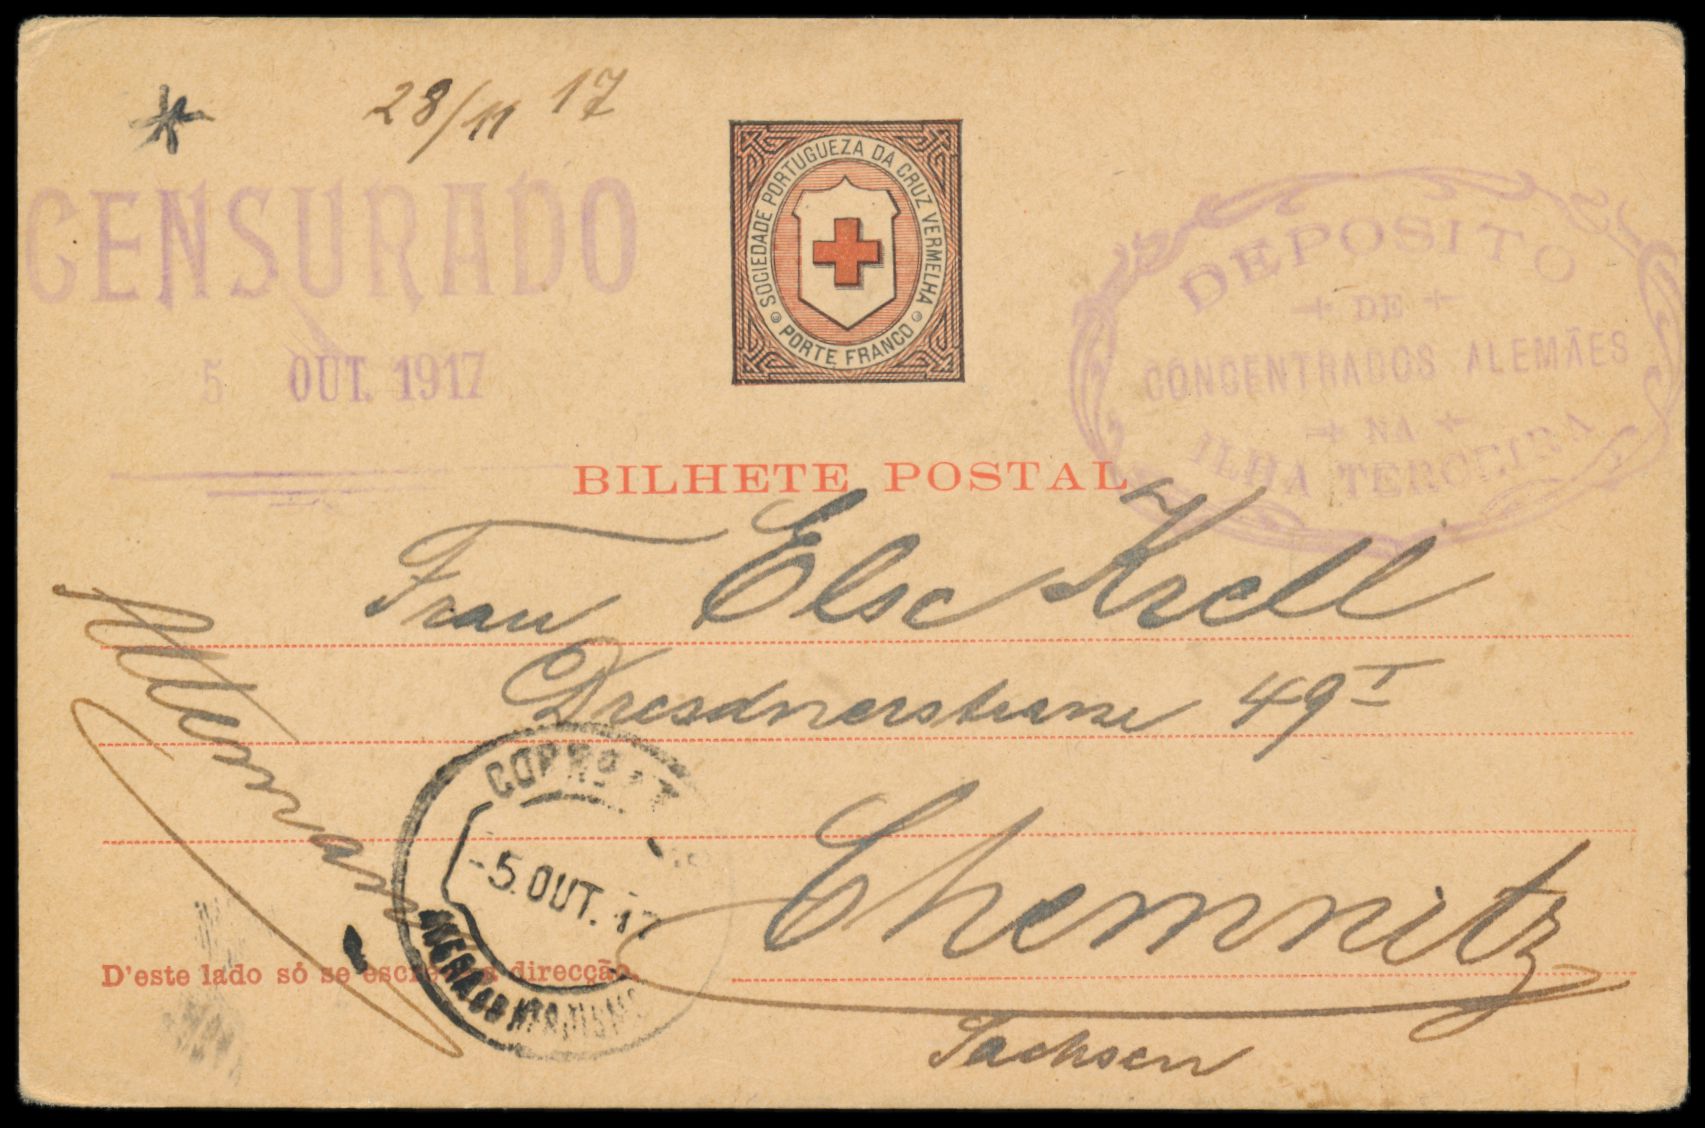 28/11 17
CENSURADO
5 OUT. 1917
SOCIEDADE PORTUGUEZA DA CRUZ VERMELHA
PORTE FRANCO
DEPOSITO
DE
CONCENTRADOS ALEMÃES
NA
ILHA TERCEIRA
BILHETE POSTAL
Frau Else Krell
Dresdnerstrasse 49 I
Chemnitz
Sachsen
-5. OUT. 17
D'este lado só se escreve a direcção.